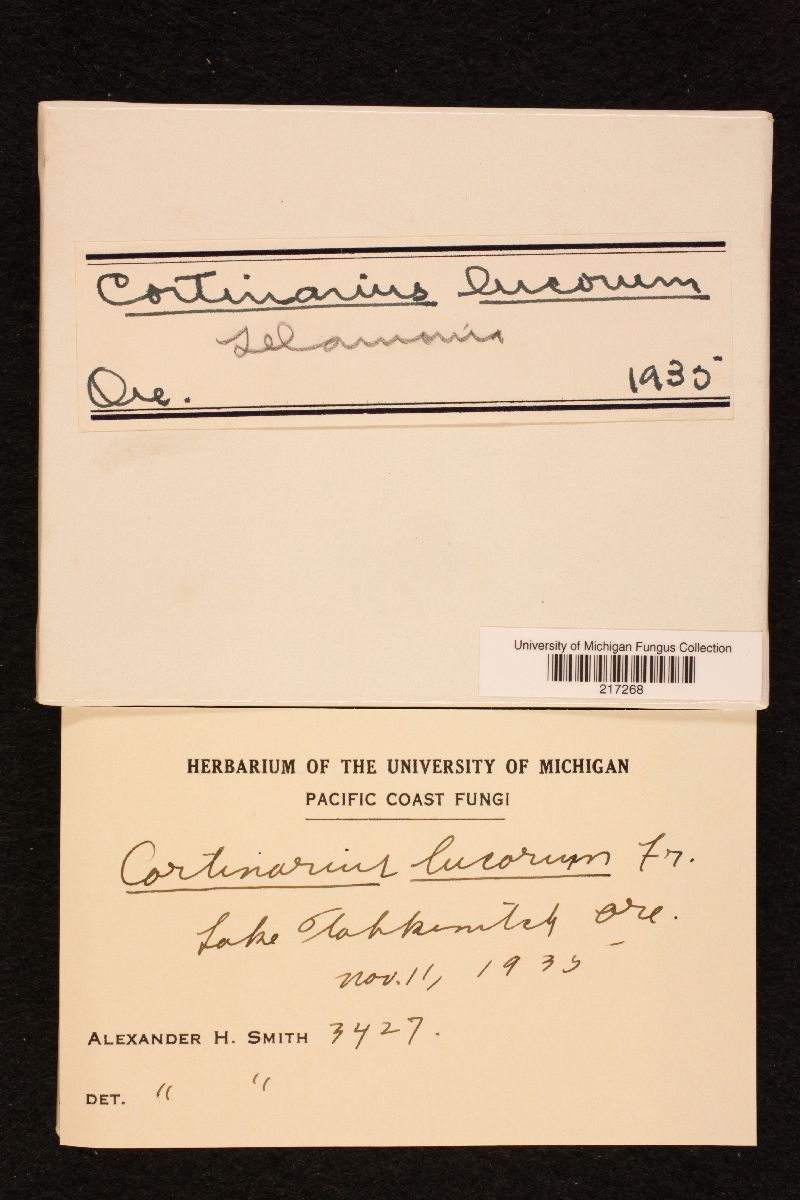 Cortinarius lucorum
Telamonia
Ore. 1935
University of Michigan Fungus Collection
217268
HERBARIUM OF THE UNIVERSITY OF MICHIGAN
PACIFIC COAST FUNGI
Cortinarius lucorum Fr.
Lake Tahkenitch Ore.
Nov. 11, 1935
ALEXANDER H. SMITH 3427.
DET. " "